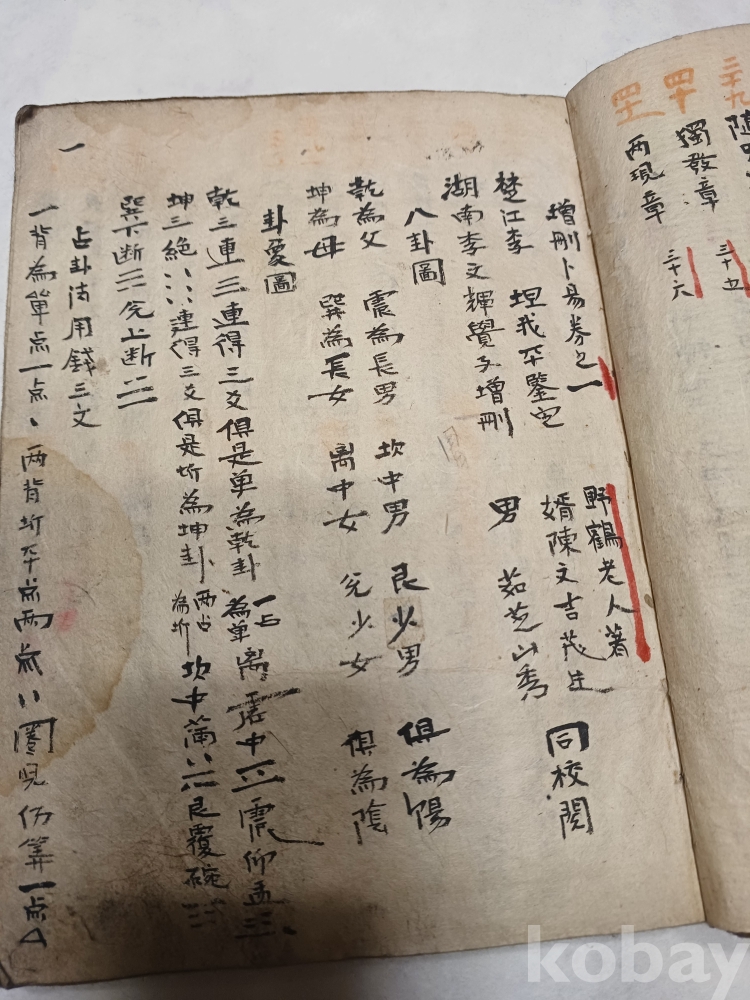 三十九
隨
四十
獨發章
三十五
四十一
兩現章
三十六
增刪卜易券之一
野鶴老人著
楚江李
坦我平鑒定
婿陳文吉茂生
同校閱
湖南李文輝覺子增刪
男
茹芝山秀
八卦圖
乾為父 震為長男 坎中男 艮少男 俱為陽
坤為母 巽為長女 离中女 兌少女 俱為陰
卦象圖
乾三連三連得三爻俱是单為乾卦 一占為单 离 中 震仰盂
坤三絶 連得三爻俱是坼為坤卦 两占為坼 坎中滿 艮覆碗
巽下断 兌上断
占卦法用錢三文
一背為單点一点、两背坼平点两点 圈児仍算一点
一
kobay